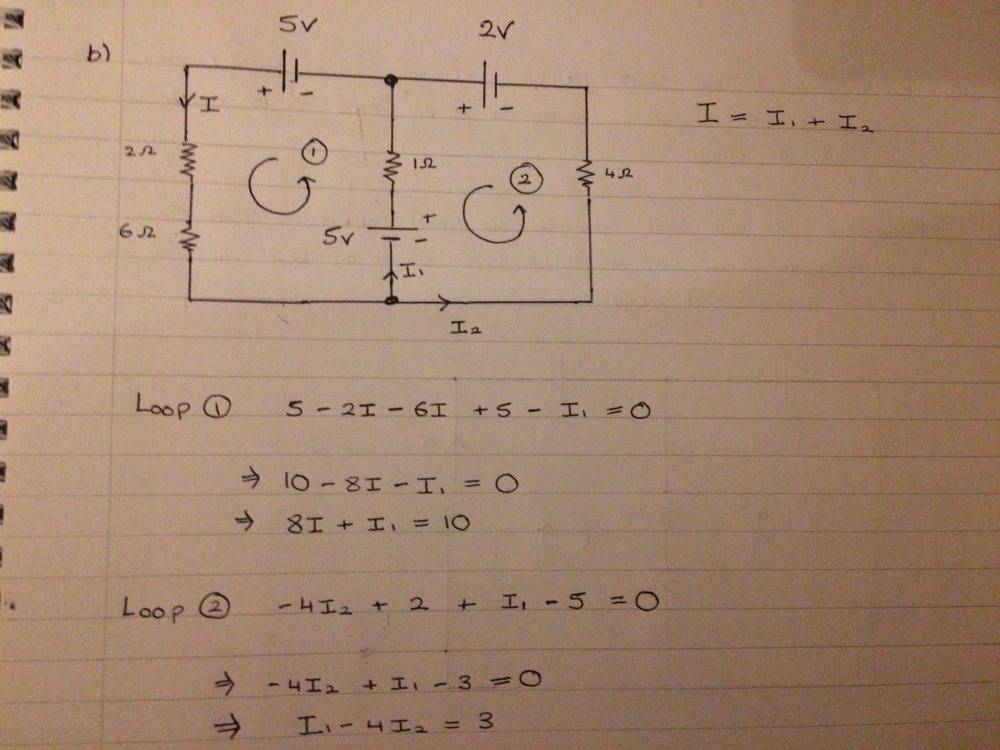 b)
5V
2V
+ -
+ -
I
I = I₁ + I₂
2Ω
①
1Ω
②
4Ω
6Ω
5V
+
-
I₁
I₂
Loop ① 5 - 2I - 6I + 5 - I₁ = 0
⇒ 10 - 8I - I₁ = 0
⇒ 8I + I₁ = 10
Loop ② -4I₂ + 2 + I₁ - 5 = 0
⇒ -4I₂ + I₁ - 3 = 0
⇒ I₁ - 4I₂ = 3